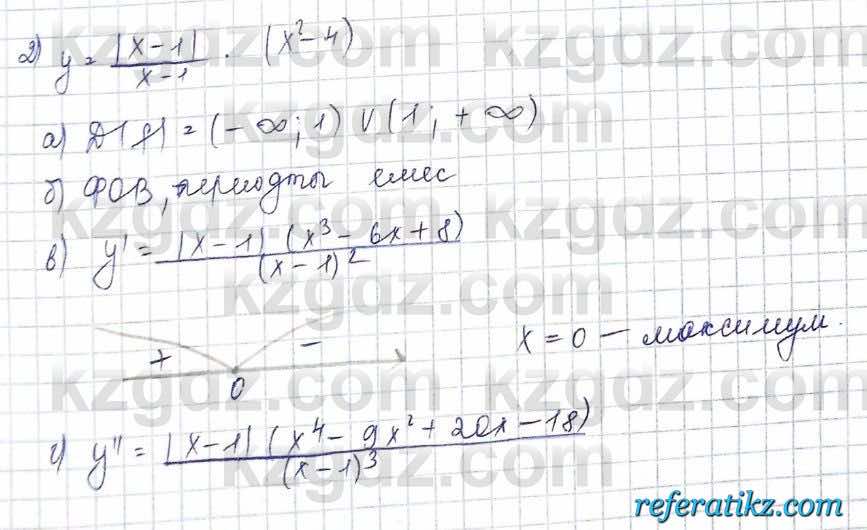 2) y = |x-1|/(x-1) · (x²-4)
а) D(f) = (-∞; 1) ∪ (1; +∞)
б) ФОВ, периодты емес
в) y' = |x-1| (x³-6x+8)/(x-1)²
+ - 
0
x = 0 - максимум.
г) y'' = |x-1| (x⁴-9x²+20x-18)/(x-1)³
kzgdz.com
referatikz.com